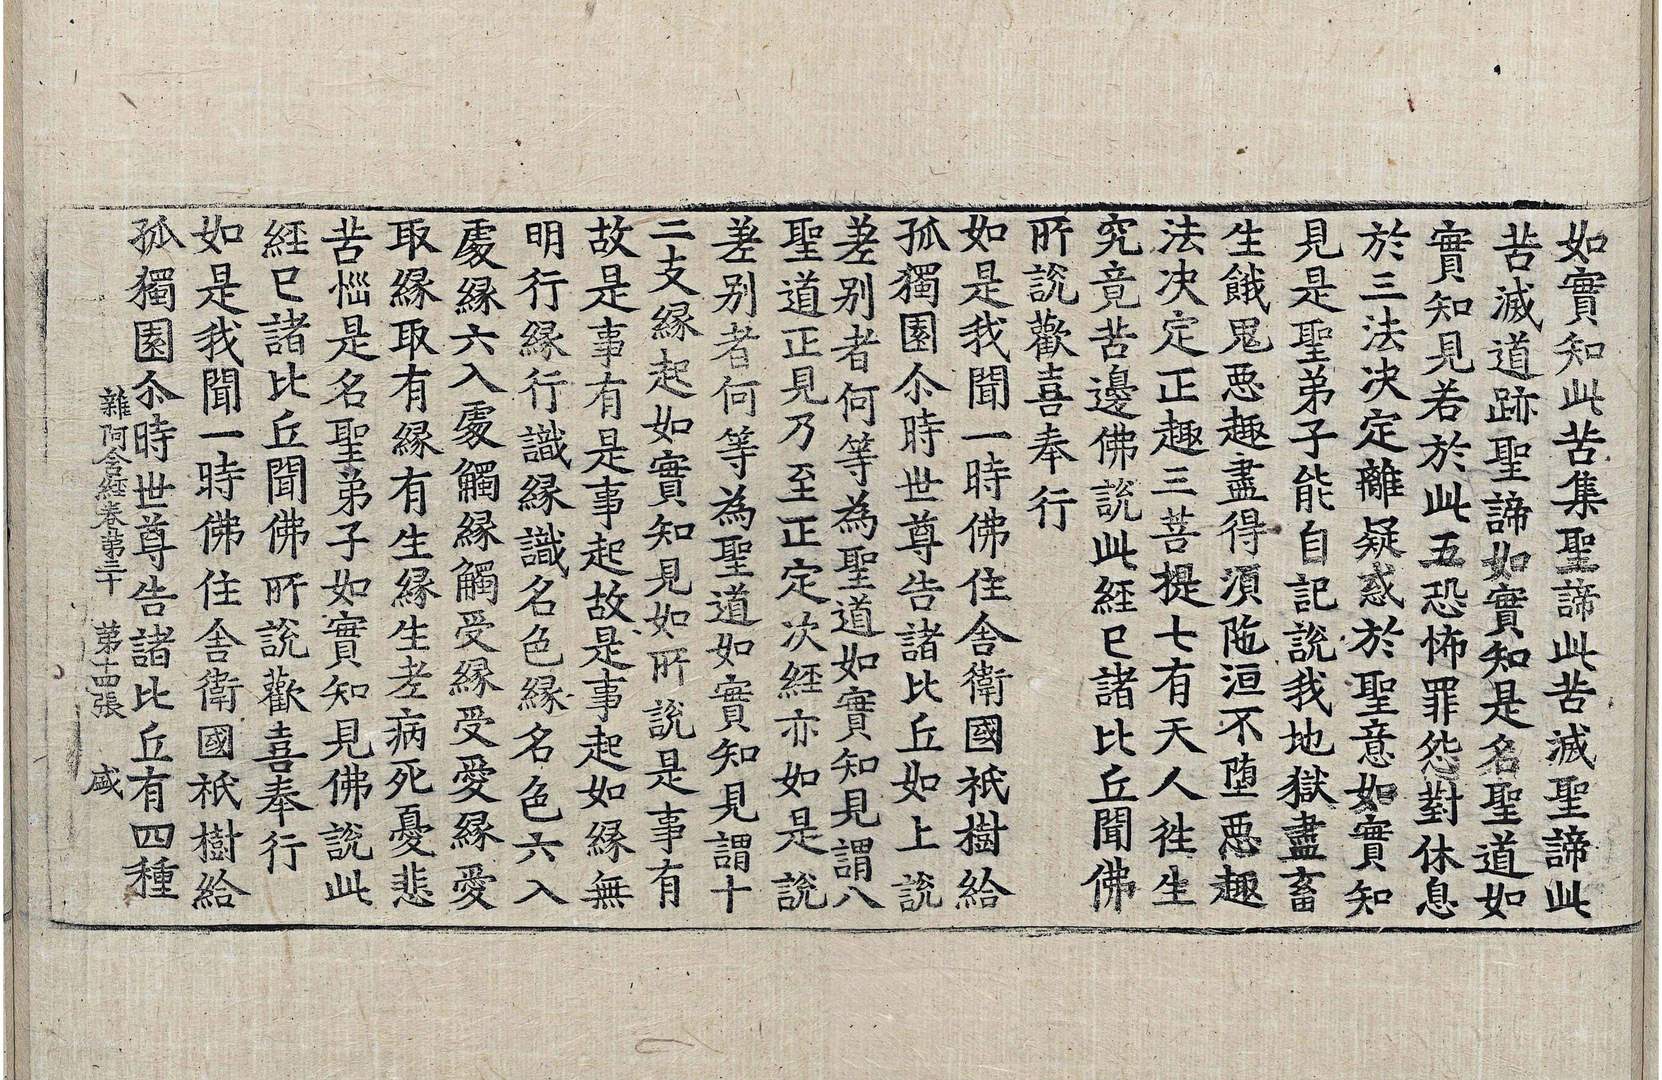 如實知此苦集聖諦此苦滅聖諦此
苦滅道跡聖諦如實知是名聖道如
實知見若於此五恐怖罪怨對休息
於三法決定離疑惑於聖意如實知
見是聖弟子能自記說我地獄盡畜
生餓鬼惡趣盡得須陁洹不墮惡趣
法決定正趣三菩提七有天人往生
究竟苦邊佛說此經已諸比丘聞佛
所說歡喜奉行
如是我聞一時佛住舍衛國祇樹給
孤獨園尒時世尊告諸比丘如上說
差別者何等為聖道如實知見謂八
聖道正見乃至正定次經亦如是說
差別者何等為聖道如實知見謂十
二支緣起如實知見如所說是事有
故是事有是事起故是事起如緣無
明行緣行識緣識名色緣名色六入
處緣六入處觸緣觸受緣受愛緣愛
取緣取有緣有生緣生老病死憂悲
苦惱是名聖弟子如實知見佛說此
經已諸比丘聞佛所說歡喜奉行
如是我聞一時佛住舍衛國祇樹給
孤獨園尒時世尊告諸比丘有四種
雜阿含經卷第三十 第十四張 盛